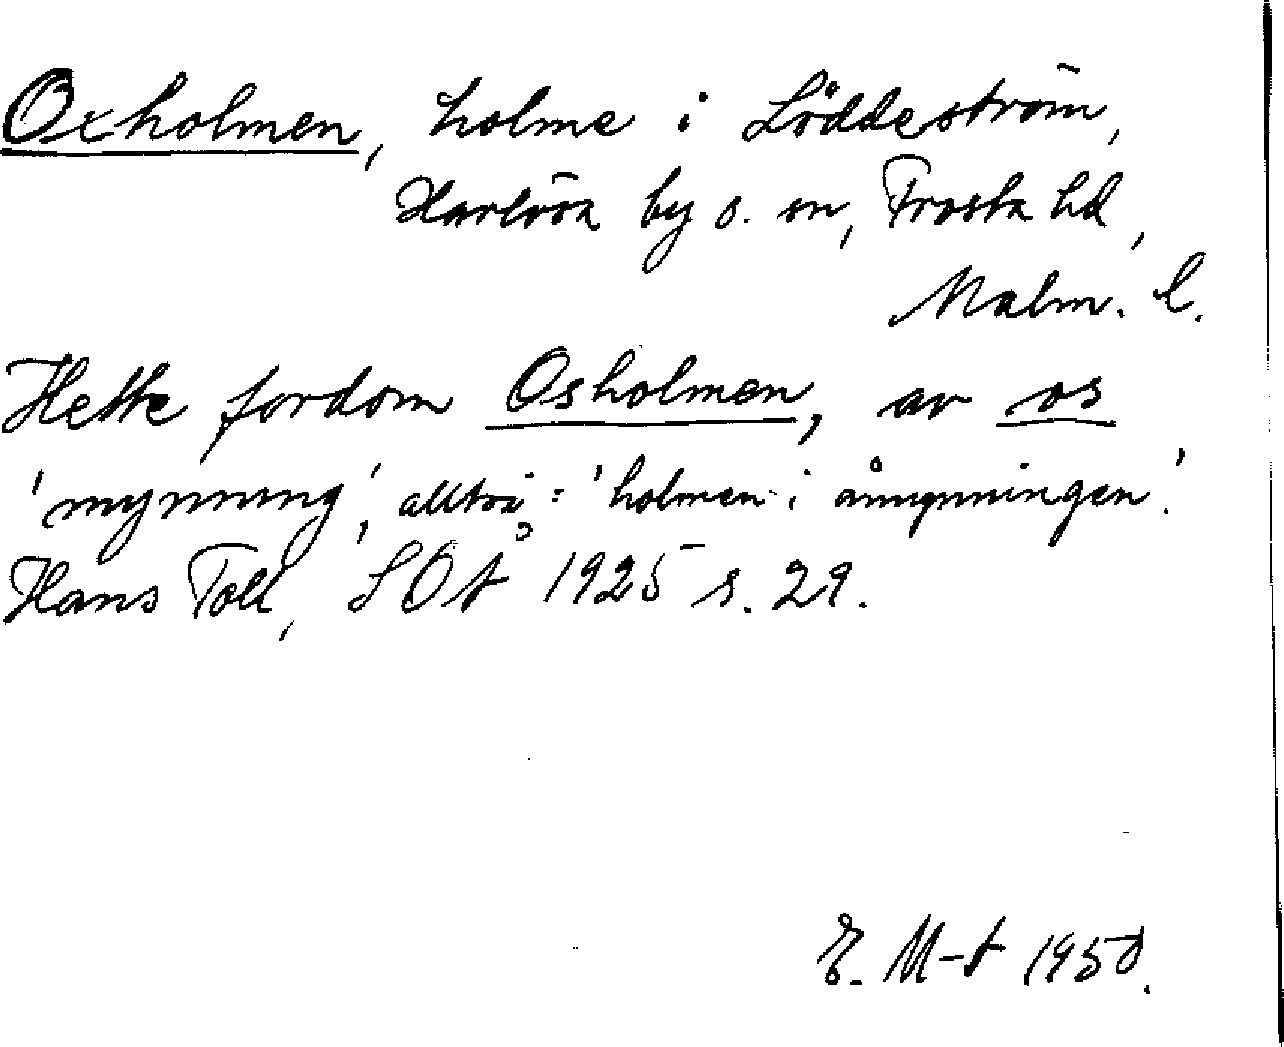 Oxholmen, holme i Löddeström,
Harlösa by o. sn, Frosta hd,
Malm. l.
Hette fordom Osholmen, av os
'mynning', alltså: 'holmen i åmynningen'.
Hans Toll, SOÅ 1925 s. 29.
E. M-t 1950.